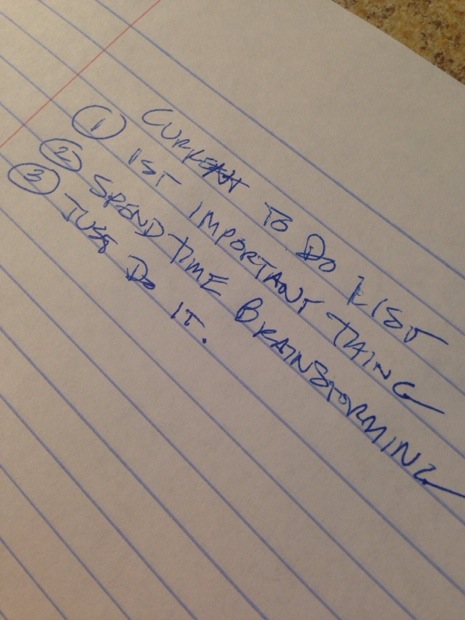 CURRENT TO DO LIST
① 1ST IMPORTANT THING
② SPEND TIME BRAINSTORMING
③ JUST DO IT.